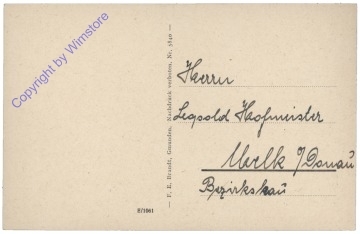 Copyright by Wimstore
— F. E. Brandt, Gmunden, Nachdruck verboten, Nr. 5840 —
E/1061
Herrn
Leopold Hofmeister
Melk a/Donau
Bezirksbau